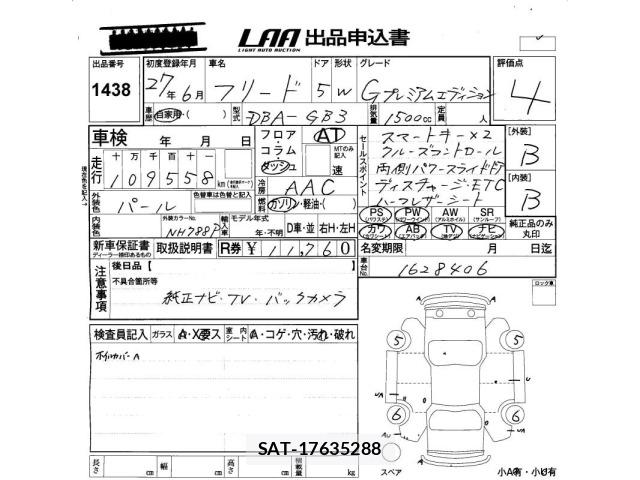 LAA 出品申込書
LIGHT AUTO AUCTION
出品番号 初度登録年月 車名 ドア 形状 グレード 評価点
1438 27年6月 フリード 5 W Gプレミアムエディション 4
車歴 自家用・( ) 型式 DBA-GB3 排気量 1500cc 定員 人
車検 年 月 日 フロア・コラム・ダッシュ AT MTのみ記入 速
セールスポイント スマートキー×2
クルーズコントロール
両側パワースライドドア
ディスチャージ・ETC
ハーフレザーシート
[外装] B
[内装] B
走行 十万千百十 109558 km
冷房 AAC
外装色 パール 色替車は色替と記入 燃料 ガソリン・軽油・( )
PS (パワステ) PW (パワーウインド) AW (アルミホイル) SR (サンルーフ)
カワ (カワシート) AB (エアバック) TV (地デジ) ナビ (ナビゲーション)
純正品のみ丸印
内装色 外装カラーNo. NH788P 輸入車 モデル年式 年・不明 D車・並 右H・左H
新車保証書 ディーラー捺印あるもの 取扱説明書 R券 ¥11,760 名変期限 月 日迄
注意事項 後日品【 】
不具合箇所等
純正ナビ・TV・バックカメラ
車台No. 1628406
ロック車
検査員記入 ガラス A・X要ス 室内シート A・コゲ・穴・汚れ・破れ
ホイルカバーA
A A
5 5
U
UA UA
6 6
AU
SAT-17635288
長さ cm 幅 cm 高さ cm 積載量 kg
スペア
小A有・小U有